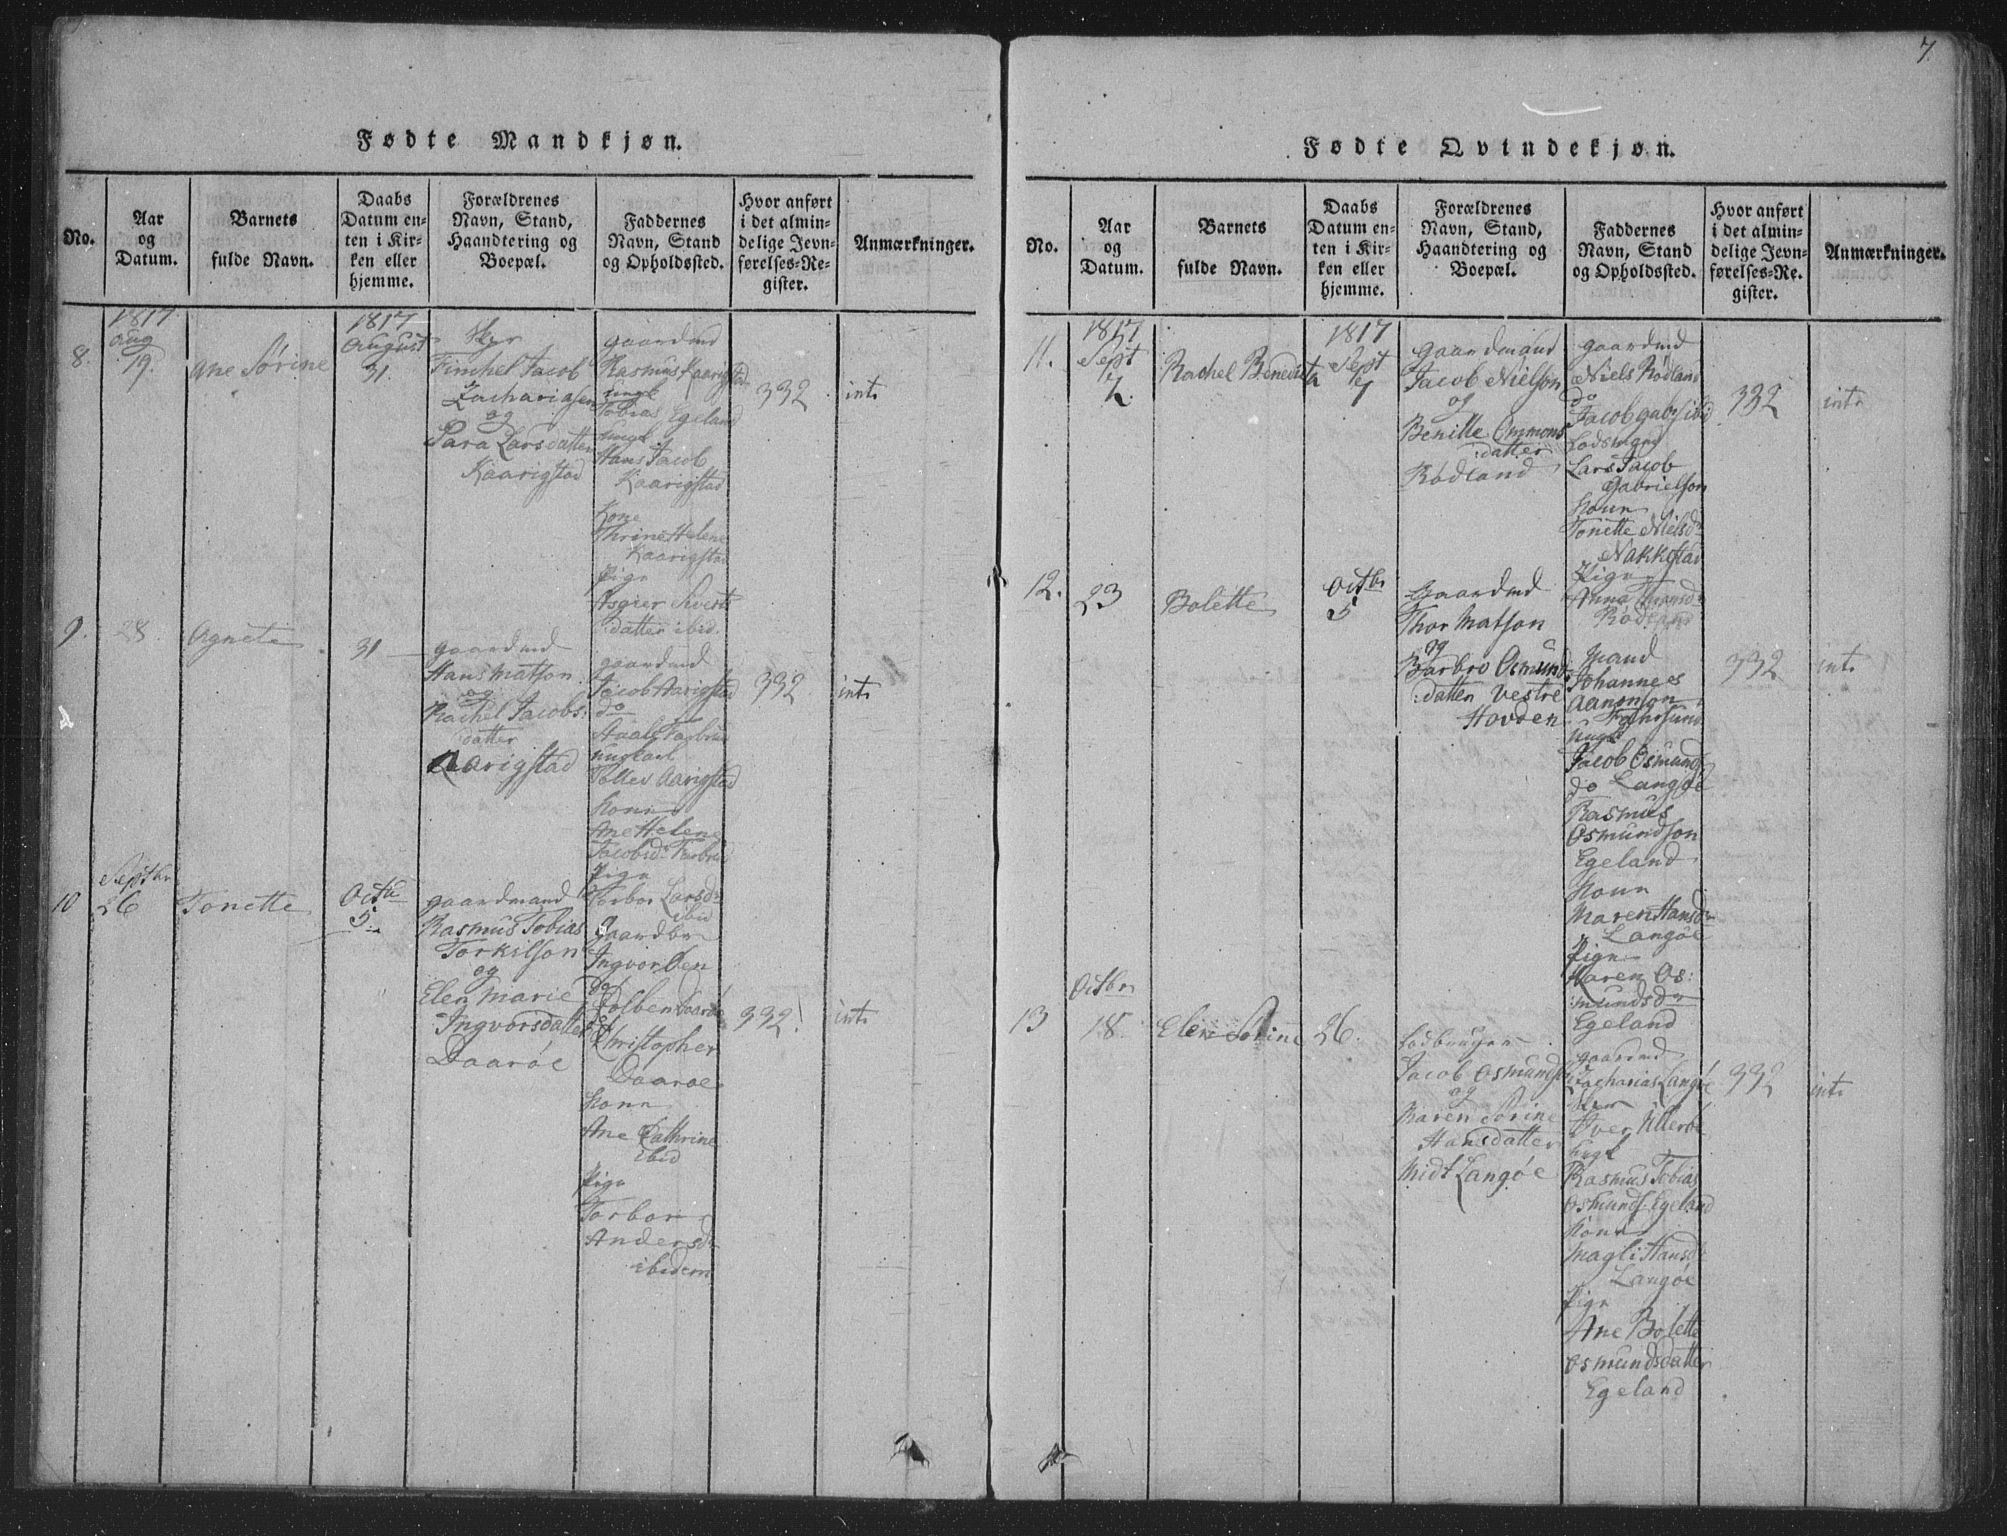 7.
Fødte Mandkjøn.
No.
Aar
og
Datum.
Barnets
fulde Navn.
Daabs
Datum en-
ten i Kir-
ken eller
hjemme.
Forældrenes
Navn, Stand,
Haandtering og
Boepæl.
Faddernes
Navn, Stand
og Opholdssted.
Hvor anført
i det almin-
delige Jevn-
førelses-Re-
gister.
Anmærkninger.
8.
1817
Aug
19.
Ane Sørine
1817
August
31.
Jacob
Zachariasen
og
Sara Larsdatter
Kaarigstad
gaardmd
Rasmus Kaarigstad
Tobias Egeland
Hans Jacob
Kaarigstad
Kone
Thrine Helene
Kaarigstad
Pige
Asgier Siverts
datter ibid.
332
int
9.
28.
Agnete
31
gaardmd
Hans Matson
og
Rachel Jacobs:
datter
Aarigstad
gaardmd
Jacob Aarigstad
do
ungkarl
Tolles Aarigstad
kone
Ane Helene
Jacobsd.
Pige
Torbor Larsd:
ibid
332
int
10
Septbr
26
Tonette
Octb
5.
gaardmand
Rasmus Tobias
Torkilson
og
Elen Marie
Ingvorsdatter
Daarøe
gaardbr
Ingvor
do
Daarøe
Christopher
Daarøe
kone
Ane Cathrine
ibid
Pige
Torbor
Andersd:
ibidem
332.
int
Fødte Qvindekjøn.
No.
Aar
og
Datum.
Barnets
fulde Navn.
Daabs
Datum en-
ten i Kir-
ken eller
hjemme.
Forældrenes
Navn, Stand,
Haandtering og
Boepæl.
Faddernes
Navn, Stand
og Opholdssted.
Hvor anført
i det almin-
delige Jevn-
førelses-Re-
gister.
Anmærkninger.
11.
1817
Sept
7.
Rachel Benedicta
1817
Sept
7
gaardmand
Jacob Nielson
og
Benitte Ommons
:datter
Rødland
gaardmd
Niels Rødland
do
Jacob gabr: ibid
Lars Jacob
Gabrielson
kone
Tonette Nielsd:
Nakkestad
Pige
Anna Hansd:
Rødland
332
int
12.
23
Bolette
Octbr
5
Gaardmd
Thor Matson
og
Barbro Osmund
:datter Vestre
Hovden
Mand
Johannes
Aanonson
Farsund
ungk
Jacob Osmunds
do Langøe
Rasmus
Osmundson
Egeland
Kone
Maren Hansd:
Langøe
Pige
Karen Os:
mundsd:
Egeland
332
int
13
Octbr
18.
Elen Sorine
26.
Jacob Osmunds
og
Maren Sorine
Hansdatter
Midt Langøe
gaardmd
Zacharias Langøe
Iver Ullerøe
ungk
Rasmus Tobias
Osmunds Egeland
Kone
Magli Hansd:
Langøe
Pige
Ane Bolette
Osmundsdatter
Egeland
332
int